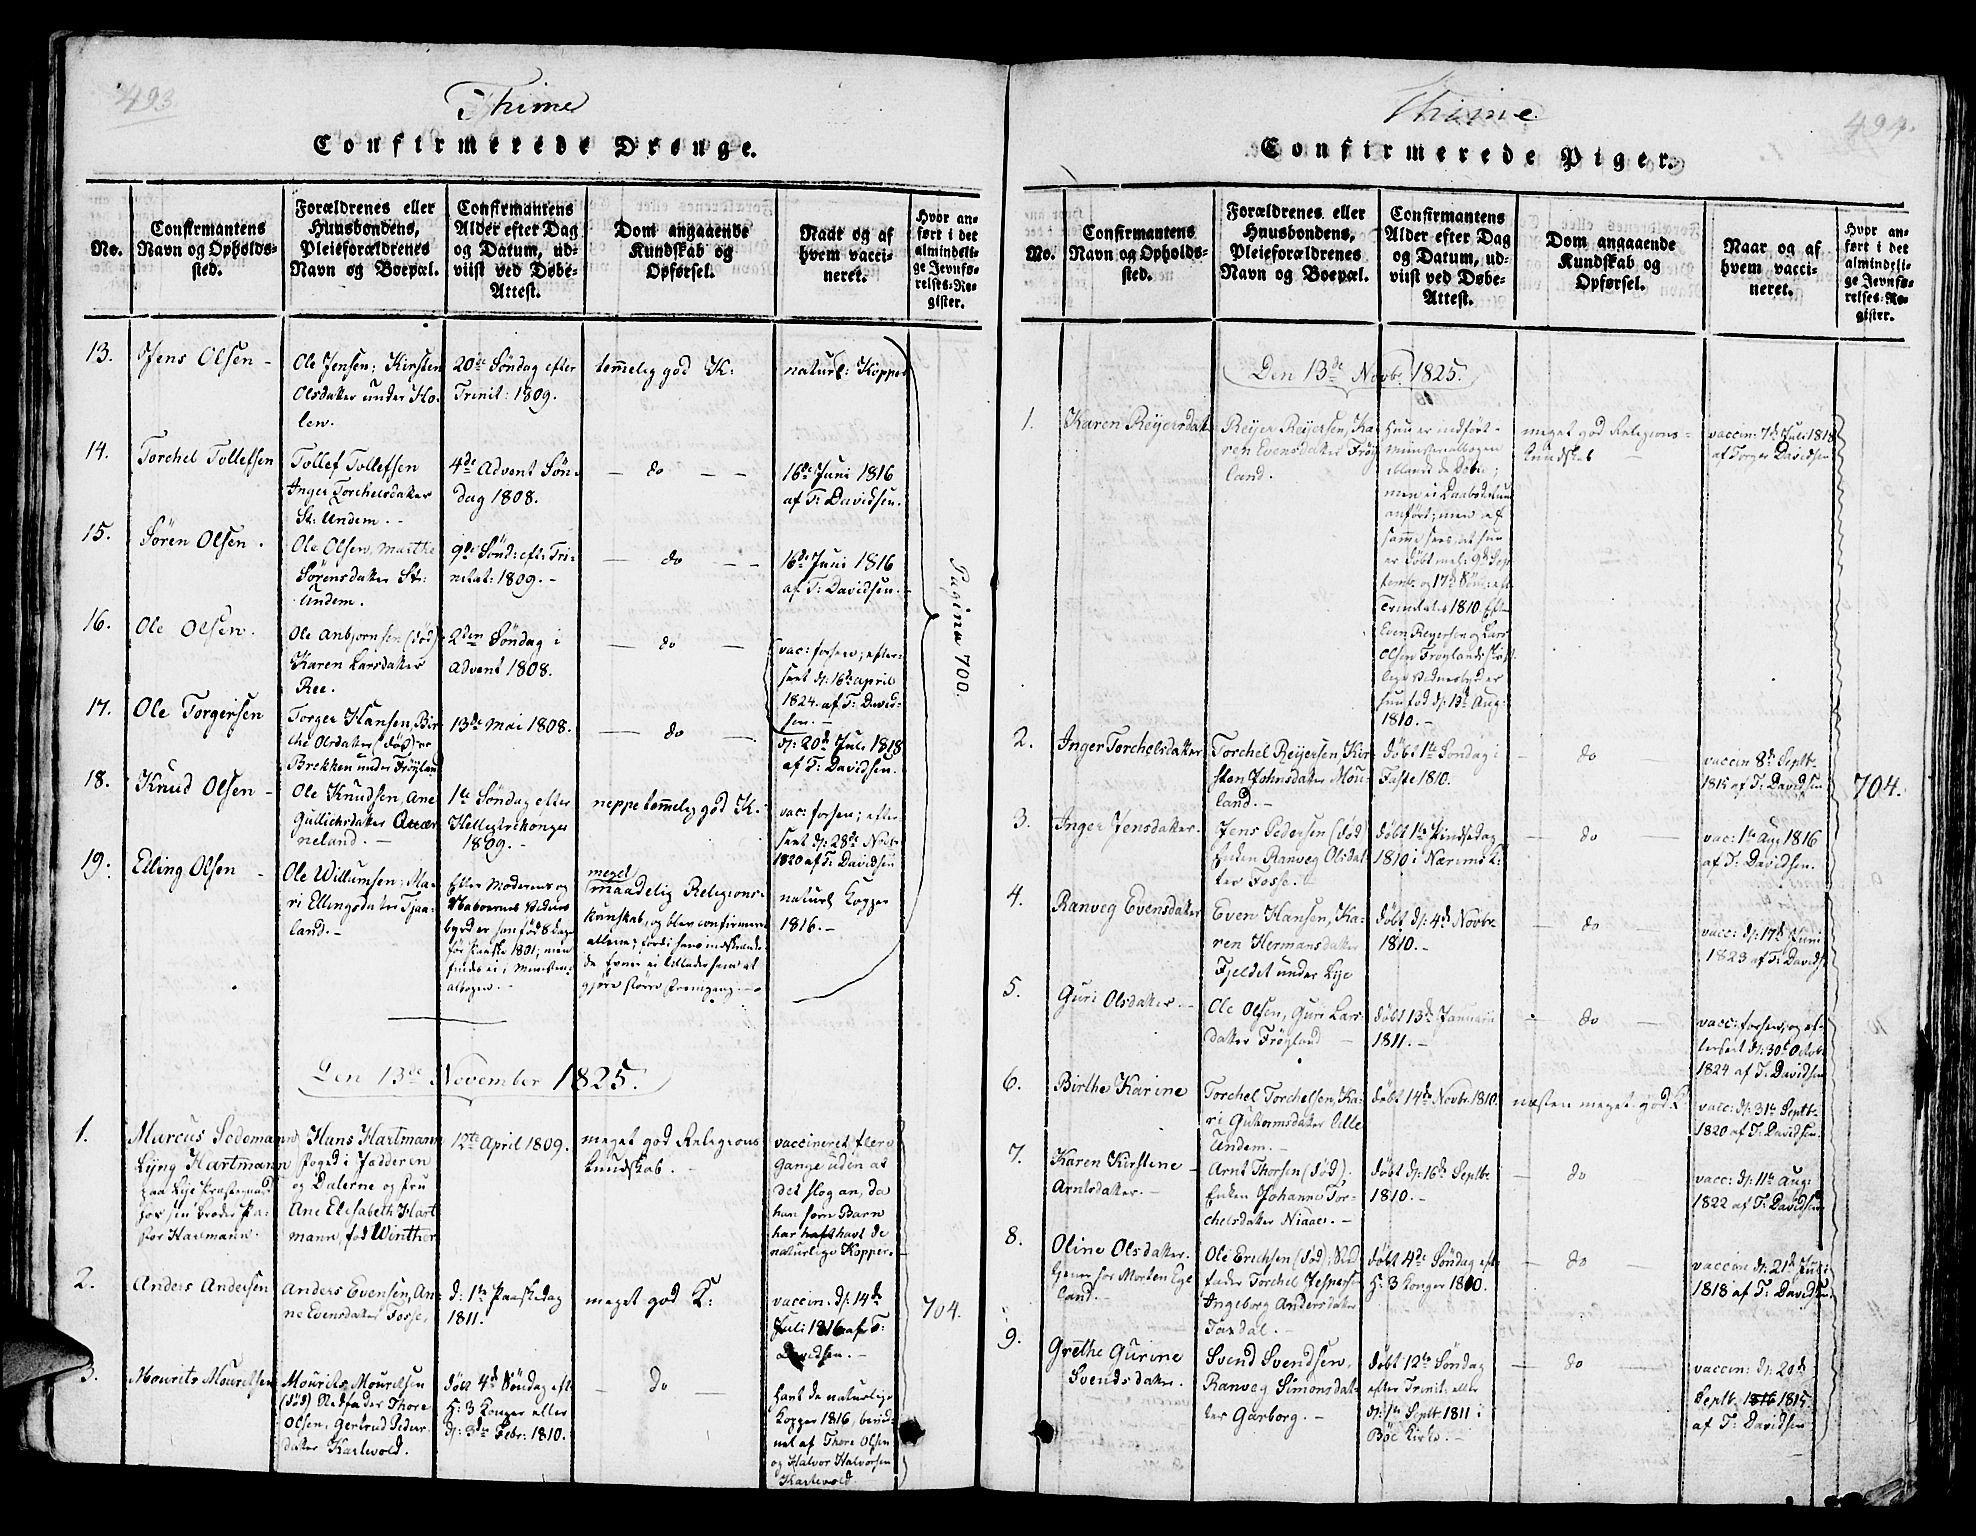 493.
Thime
Confirmerede Drenge.
No.
Confirmantens
Navn og Opholds-
sted.
Forældrenes eller
Huusbondens,
Pleieforældrenes
Navn og Boepæl.
Confirmantens
Alder efter Dag
og Datum, ud-
viist ved Døbe-
Attest.
Dom angaaende
Kundskab og
Opførsel.
Naar og af
hvem vacci-
neret.
Hvor an-
ført i det
almindeli-
ge Jevnfø-
relses-Re-
gister.
13.
Jens Olsen -
Ole Jensen; Kirsten
Olsdatter under Ho-
len.
20de Søndag efter
Trinit: 1809.
temmelig god K:
naturl: Kopper
14.
Torchel Tollefsen
Tollef Tollefsen
Inger Torchelsdatter
St: Undem. -
4de Advent Søn-
dag 1808.
— do — —
16de Juni 1816
af T: Davidsen.
15.
Sören Olsen.
Ole Olsen, Marthe
Sörensdatter St:
Undem.
9de Sönd: eft: Tri-
nitat: 1809. -
— do — —
16de Juni 1816
af T: Davidsen.
16.
Ole Olsen.
Ole Anbjornsen (död)
Karen Larsdatter
Ree.
2den Söndag i
Advent 1808.
— do —
vac: forsen; efter-
seet d: 16de april
1824. af T: David-
sen. -
17.
Ole Torgersen
Torger Hansen, Bir-
the Olsdatter (död)
Brekken under Fröylan
13de Mai 1808.
— do —
d: 20de Juli 1818
af T: Davidsen.
18.
Knud Olsen -
Ole Knudsen, Ane
Gullichsdatter Quær-
neland. -
1te Söndag efter
Helligtrekonger
1809. -
neppe temmelig god K:
vac: forsen; efter-
seet d: 28de Novbr
1820 af T: Davidsen
19.
Elling Olsen -
Ole Willumsen; Ma-
ri Ellingsdatter Tjaa-
land. -
Efter Moderens og
Naboernes Vidnes
byrd er han föd 8 dage
för Paaske 1801; men
findes ei i Ministeri-
albogen. -
meget
maadelig Religions-
kundskab, og blev confirmeret
allene; fordi hans indskrænke-
de Evner ei tillader ham at
gjöre större Fremgang. -
naturl Kopper
1816. -
Pagina 700.
Den 13de November 1825.
1.
Marcus Sedemann
Lyng Hartmann
paa Lye Præstegaard
hos sin broder Pa-
stor Hartmann.
Hans Hartmann
foged i Jædderen
og Dalerne og fru
Ane Elisabeth Hart
mann, föd Winther
12te April 1809.
meget god Religions
kundskab. -
vaccineret flere
Gange uden at
det slog an, da
han som Barn
har havt de
naturlige Kopper. -
2.
Anders Andersen
Anders Evensen, An-
ne Evensdatter Fosse.
d: 1te Paaskedag
1811.
meget god K:
vaccin: d: 14de
Juli 1816 af T:
Davidsen. -
704.
3.
Mourits Mouritsen
Mourits Mouritsen
(död) Stedfader Thore
Olsen, Gertrud Peder
datter Karlevold.
döbt 4de Söndag eft
H: 3 Konger eller
d: 3de Febr: 1810.
— do —
havt de naturlige
Kopper 1816, bevid-
net af Thore Olsen
og Halvor Halvorsen
Karlevold.
494.
Thime
Confirmerede Piger.
No.
Confirmantens
Navn og Opholds-
sted.
Forældrenes eller
Huusbondens,
Pleieforældrenes
Navn og Boepæl.
Confirmantens
Alder efter Dag
og Datum, ud-
viist ved Døbe-
Attest.
Dom angaaende
Kundskab og
Opførsel.
Naar og af
hvem vacci-
neret.
Hvor an-
ført i det
almindeli-
ge Jevnfø-
relses-Re-
gister.
Den 13de Novbr. 1825.
1.
Karen Reyersdat
Reyer Reyersen, Ka
ren Evensdatter Fröy
land.
Hun er indfört
Ministerialbogen
iblandt de Döbte;
men ei Daabsdatum
anfört; men af
samme sees at hun
er döbt mel: 9de Sep
tembr og 17de Sönd: eft
Trinitatis 1810. Eft
Even Reyersen og Lars
Olsen Frøylands
Vidnesbyrd er
hun föd d: 13de Aug:
1810. -
meget god Religions-
kundskab —
vaccin: 7de Juli 1818
af Torger Davidsen
2.
Inger Torchelsdatter
Torchel Reyersen, Kir
sten Johnsdatter Mou-
land. -
döbt 1te Söndag i
Faste 1810.
— do —
vaccin 8de Septbr
1815 af T: Davidsen
704.
3.
Inger Jensdatter.
Jens Pedersen (död
Enken Ranveg Olsdat
ter Fosse. -
döbt 1te Pindsedag
1810 i Nærims K:
— do —
vac: 1te Aug 1816
af T: Davidsen.
4.
Ranveg Evensdatter
Even Hansen, Ka-
ren Hermansdatter
Fjeldet under Lye
döbt d: 4de Novbr
1810. -
— do —
vacc: d: 17de Juni
1823 af T: Davids
5.
Guri Olsdatter. -
Ole Olsen, Guri Lars-
datter Fröyland —
döbt 13de Januari
1811. -
— do —
vacc: forsen; og ef-
terseet d: 30te Octob:
1824 af T: Davidsen
6.
Birthe Karine
Torchel Torchelsen, Ka-
ri Guttormsdatter Lille
Undem.
döbt 14de Novbr 1810.
næsten meget god K
vacc: d: 31te Septbr
1820 af T: Davidsen.
7.
Karen Kirstine -
Arntsdatter. -
Arnt Thorsen (död).
Enken Johanne Tor-
chelsdatter Niaae. -
döbt d: 16de Septbr
1810. -
— do
vacc: d: 11te Aug:
1822 af T: Davidsen
8.
Oline Olsdatter.
tjener hos Morten Ege
land. -
Ole Erichsen (död); Sted
fader Torchel Jespers
Ingeborg Andersdatter
Taxdal. -
döbt 4de Söndag eft
H: 3 Konger 1810.
— do —
vaccin d: 21de Juli
1818 af T: Davidsen.
9.
Grethe Gurine
Svendsdatter.
Svend Svendsen,
Ranveg Simonsdat-
ter Garborg. -
döbt 12te Söndag
efter Trinit: eller
d: 1te Septbr 1811 i
Böe Kirke. -
— do —
vaccin: d: 20de
Septb. 1816 1815.
af T: Davidsen